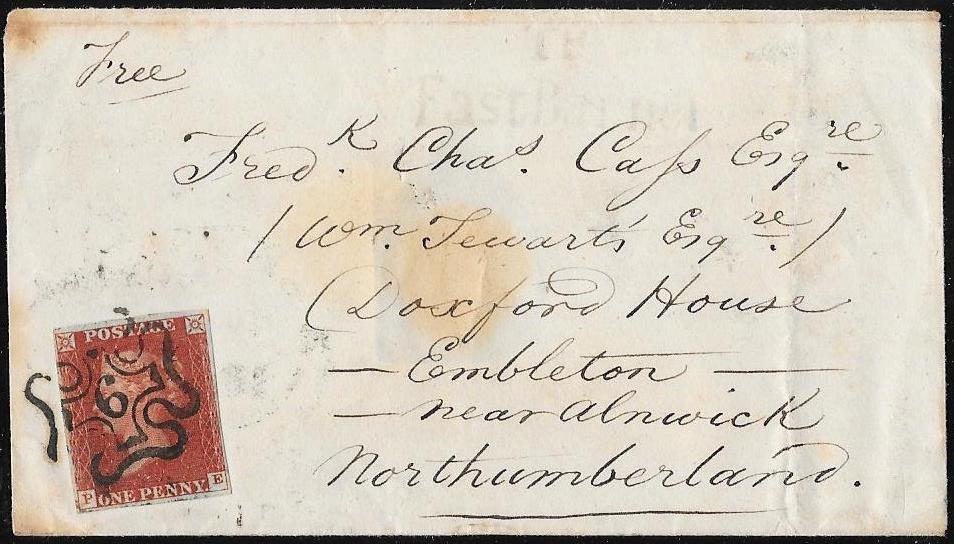 Free
Fred.k Chas. Cass Esqre.
(Wm. Tewart's Esqre.)
Doxford House
— Embleton —
— near Alnwick
Northumberland.
POSTAGE
6
P ONE PENNY E